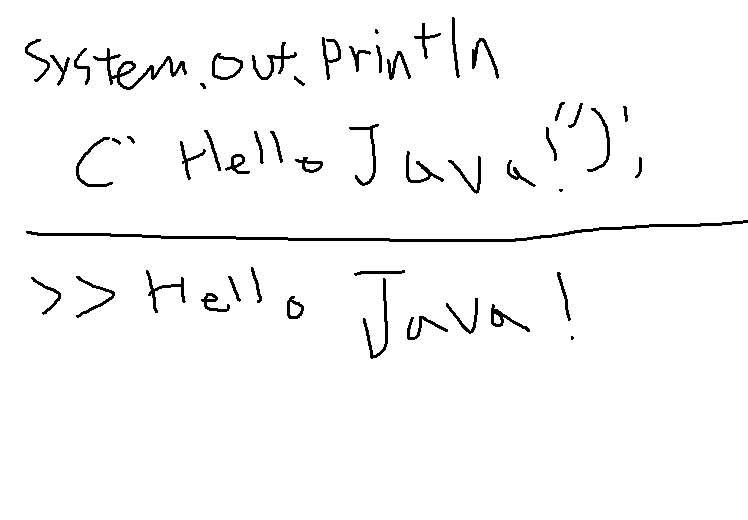 System.out.println
("Hello Java!");
>> Hello Java!